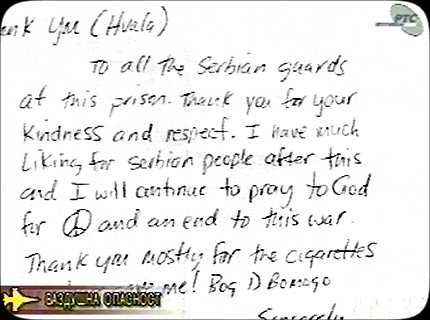 ank You (Hvala)
РТС
To all the Serbian guards
at this prison. Thank you for your
kindness and respect. I have much
Liking for Serbian people after this
and I will continue to pray to God
for ☮ and an end to this war.
Thank you mostly for the cigarettes
me! Bog D Bomogo
ВАЗДУШНА ОПАСНОСТ
Sincerely